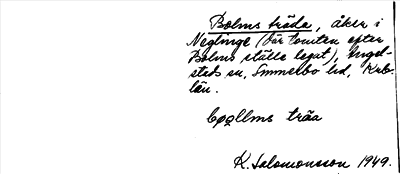 Bolms träda, åker i
Neglinge (där tomten efter
Bolms ställe legat), Ingel-
stads sn, Emmerbo hd, Krb.
län.
bollms träa
K. Salomonsson 1949.